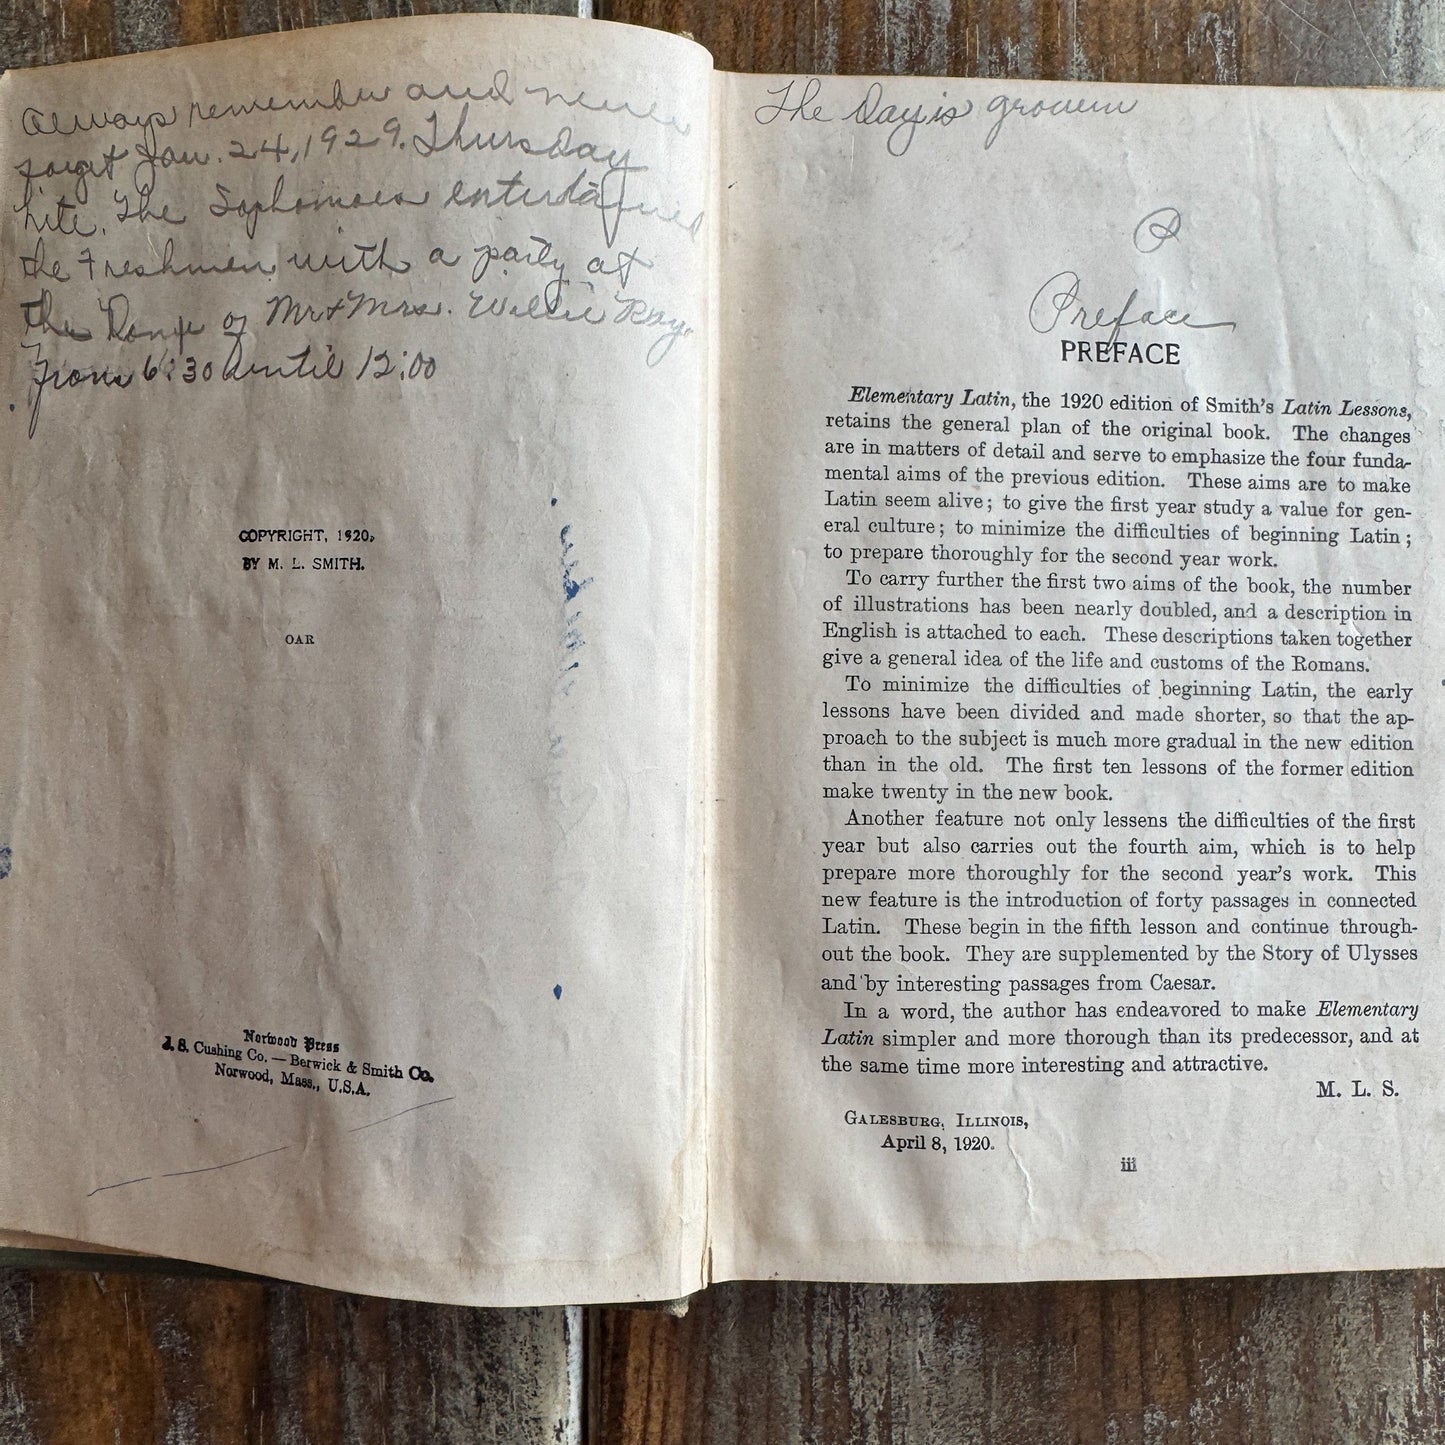 Always remember and never
forget Jan. 24, 1929. Thursday
nite. The Sophomores entertained
the Freshmen with a party at
the Home of Mr + Mrs. Willie Ray.
From 6:30 until 12:00
COPYRIGHT, 1920,
BY M. L. SMITH.
OAR
Norwood Press
J. S. Cushing Co. — Berwick & Smith Co.
Norwood, Mass., U.S.A.
The Day is
P
Preface
PREFACE
Elementary Latin, the 1920 edition of Smith's Latin Lessons,
retains the general plan of the original book. The changes
are in matters of detail and serve to emphasize the four funda-
mental aims of the previous edition. These aims are to make
Latin seem alive; to give the first year study a value for gen-
eral culture; to minimize the difficulties of beginning Latin;
to prepare thoroughly for the second year work.
To carry further the first two aims of the book, the number
of illustrations has been nearly doubled, and a description in
English is attached to each. These descriptions taken together
give a general idea of the life and customs of the Romans.
To minimize the difficulties of beginning Latin, the early
lessons have been divided and made shorter, so that the ap-
proach to the subject is much more gradual in the new edition
than in the old. The first ten lessons of the former edition
make twenty in the new book.
Another feature not only lessens the difficulties of the first
year but also carries out the fourth aim, which is to help
prepare more thoroughly for the second year's work. This
new feature is the introduction of forty passages in connected
Latin. These begin in the fifth lesson and continue through-
out the book. They are supplemented by the Story of Ulysses
and by interesting passages from Caesar.
In a word, the author has endeavored to make Elementary
Latin simpler and more thorough than its predecessor, and at
the same time more interesting and attractive.
M. L. S.
GALESBURG, ILLINOIS,
April 8, 1920.
iii